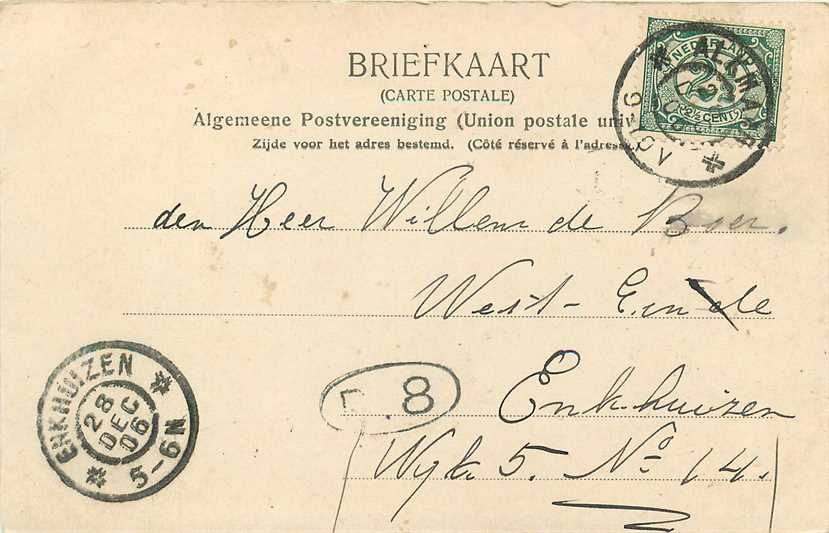 BRIEFKAART
(CARTE POSTALE)
Algemeene Postvereeniging (Union postale univ
Zijde voor het adres bestemd. (Côté réservé à l'adresse
NEDERLAND
2½
2½ CENT
ALKMAAR
den Heer Willem de Boer.
West-Einde
Enkhuizen
Wyk 5. No 14.
8
ENKHUIZEN
28
DEC
06
5-6N